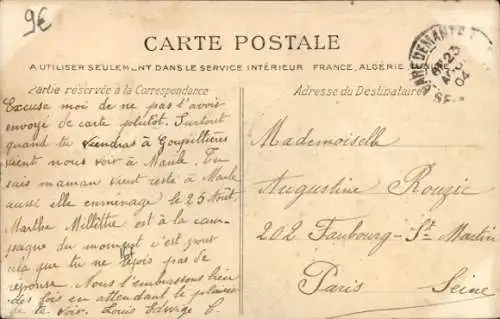 9€
CARTE POSTALE
A UTILISER SEULEMENT DANS LE SERVICE INTÉRIEUR FRANCE, ALGÉRIE
GARE DE MANTES
23
04
Partie réservée à la Correspondance
Adresse du Destinataire
Excuse moi de ne pas t'avoir
envoyé de carte plutôt. Surtout
quand tu viendras à Goupillières
vient nous voir à Maule. Tu
sais maman vient resté à Maule
aussi elle enménage le 25 Août.
Marthe Millitte est à la cam-
pagne du moment c'est pour
cela que tu ne reçois pas de
réponse. Nous t'embrassons bien
des fois en attendant le plaisir
de te voir. Louis C.
Mademoiselle
Augustine Rouzic
202 Faubourg-St Martin
Paris Seine